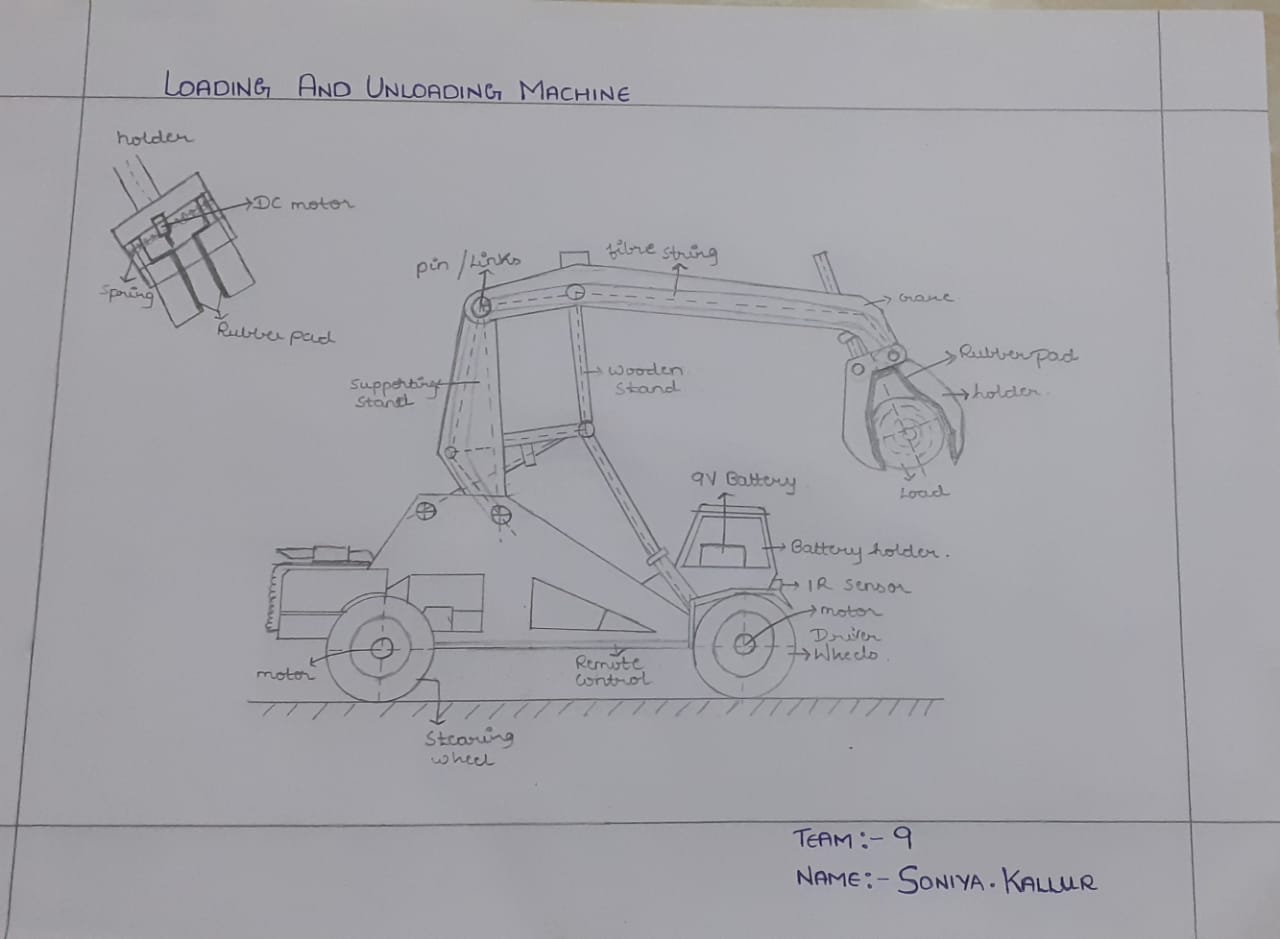 LOADING AND UNLOADING MACHINE
holder
DC motor
Spring
Rubber pad
pin / Links
fibre string
crane
Rubber pad
holder.
Load
Supporting
Stand
Wooden
Stand
9V Battery
Battery holder.
IR sensor
motor
Driver
Wheels.
motor
Remote
control
Stearing
wheel
TEAM:- 9
NAME:- SONIYA. KALLUR